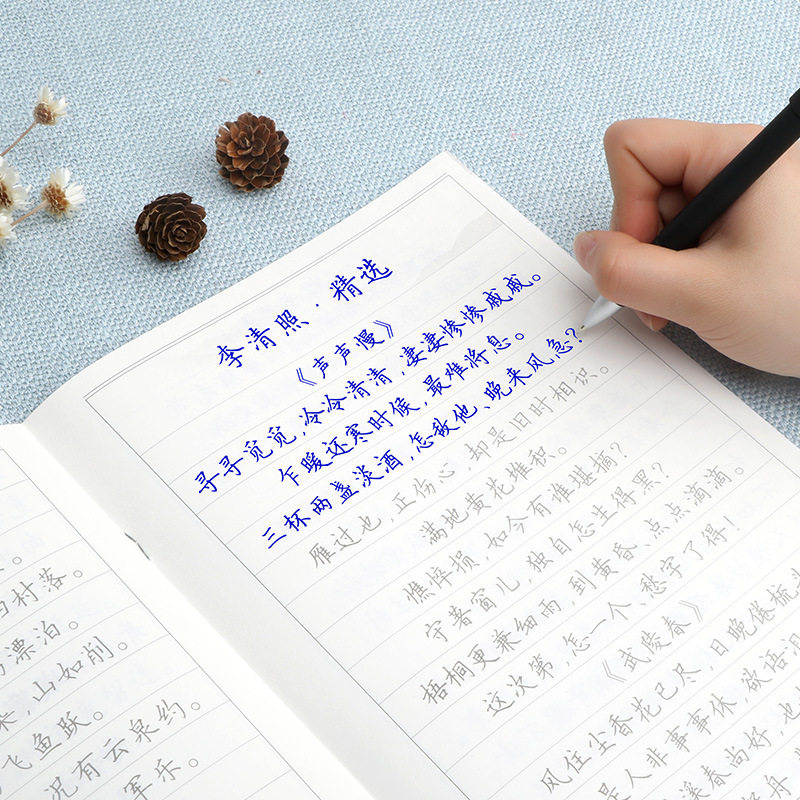 李清照·精选
《声声慢》
寻寻觅觅,冷冷清清,凄凄惨惨戚戚。
乍暖还寒时候,最难将息。
三杯两盏淡酒,怎敌他、晚来风急?
雁过也,正伤心,却是旧时相识。
满地黄花堆积。
憔悴损,如今有谁堪摘?
守著窗儿,独自怎生得黑?
梧桐更兼细雨,到黄昏、点点滴滴。
这次第,怎一个、愁字了得
《武陵春》
风住尘香花已尽,日晚倦梳头
是人非事事休,欲语泪
溪春尚好,也
舟
村落。
漂泊。
,山如削。
飞鱼跃。
况有云泉约。
军乐。